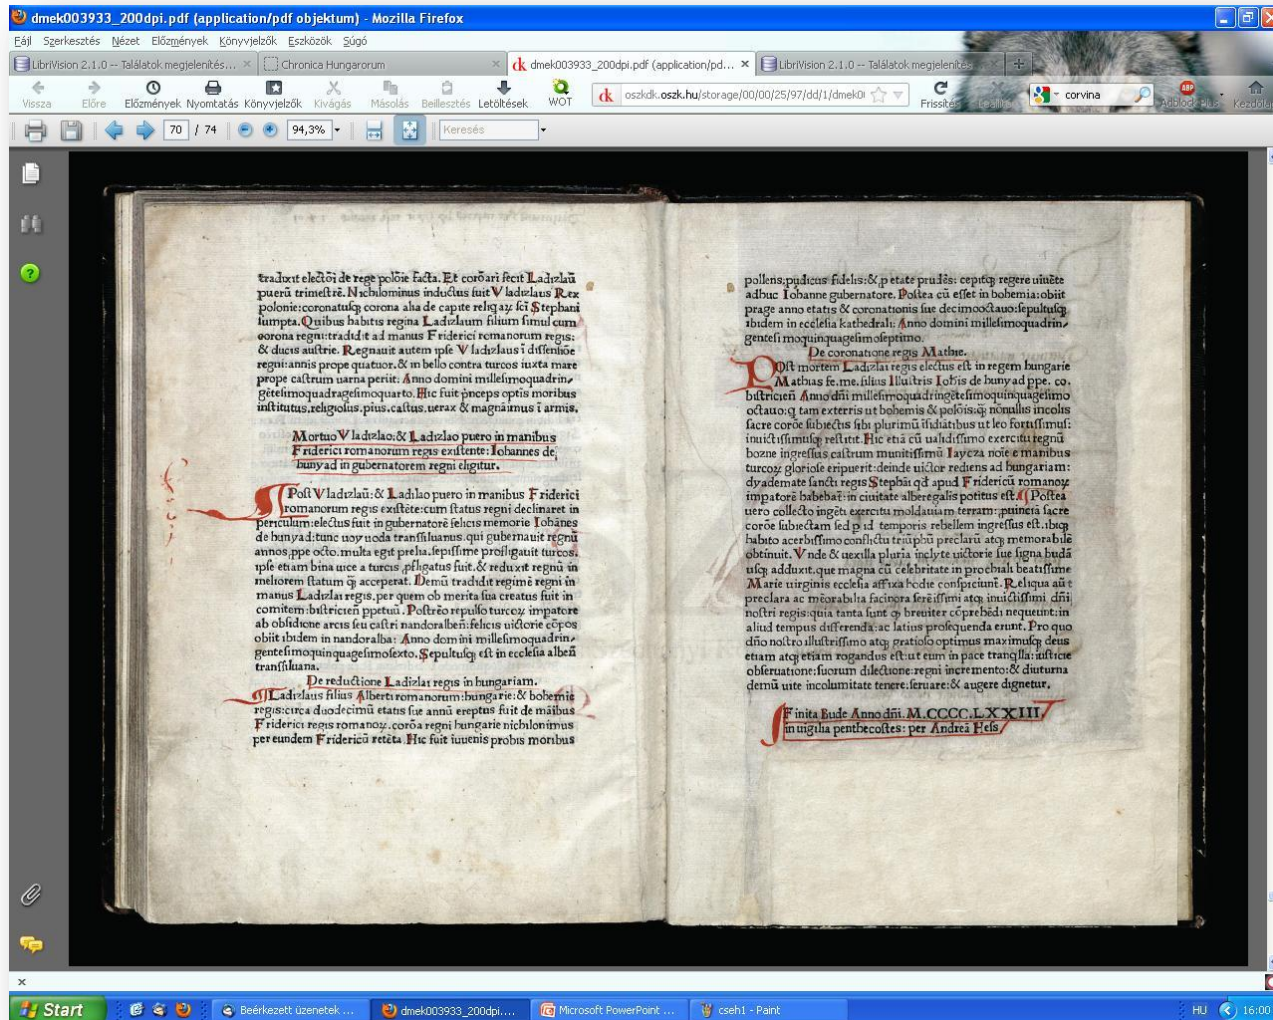 dmek003933_200dpi.pdf (application/pdf objektum) - Mozilla Firefox
Fájl Szerkesztés Nézet Előzmények Könyvjelzők Eszközök Súgó
LibriVision 2.1.0 -- Találatok megjelenítés... Chronica Hungarorum dmek003933_200dpi.pdf (application/pd... LibriVision 2.1.0 -- Találatok megjelenítés
corvina
oszkdk.oszk.hu/storage/00/00/25/97/dd/1/dmek0
Vissza Előre Előzmények Nyomtatás Könyvjelzők Kivágás Másolás Beillesztés Letöltések WOT Frissítés Leállítás Adblock Plus Kezdőlap
70 / 74 94,3% Keresés
traduxit electōi de rege polōie facta. Et corōari fecit Ladizlaū
puerū trimestrē. Nichilominus inductus fuit Vladizlaus Rex
polonie: coronatusq; corona alia de capite reliq̄aꝝ scī Stephani
sumpta. Quibus habitis regina Ladizlaum filium simul cum
corona regni: tradidit ad manus Friderici romanorum regis:
& ducis austrie. Regnauit autem ipse Vladizlaus ī dissensiōe
regni: annis prope quatuor. & in bello contra turcos iuxta mare
prope castrum uarna periit. Anno domini millesimoquadrin⸗
gētesimoquadragesimoquarto. Hic fuit pnceps optis moribus
institutus, religiosus, pius, castus, uerax & magnaimus ī armis.
Mortuo Vladizlao: & Ladizlao puero in manibus
Friderici romanorum regis existente: Iohannes de
hunyad in gubernatorem regni eligitur.
Post Vladizlaū: & Ladilao puero in manibus Friderici
romanorum regis existēte: cum status regni declinaret in
periculum: electus fuit in gubernatorē felicis memorie Iohānes
de hunyad: tunc uoyuoda transsiluanus. qui gubernauit regnū
annos, ppe octo. multa egit prelia. sepissime profligauit turcos.
ipse etiam bina uice a turcis, pfligatus fuit. & reduxit regnū in
meliorem statum q̄ acceperat. Demū tradidit regimē regni in
manus Ladizlai regis, per quem ob merita sua creatus fuit in
comitem: bistricieñ ppetuū. Postrēo repulso turcoꝝ impatore
ab obsidione arcis seu castri nandoralbeñ: felicis uictorie cōpos
obiit ibidem in nandoralba: Anno domini millesimoquadrin⸗
gentesimoquinquagesimosexto. Sepultusq; est in ecclesia albeñ
transsiluana.
De reductione Ladizlai regis in hungariam.
Ladizlaus filius Alberti romanorum: hungarie: & bohemie
regis: circa duodecimū etatis sue annū ereptus fuit de māibus
Friderici regis romanoꝝ. corōa regni hungarie nichilonimus
per eundem Fridericū retēta. Hic fuit iuuenis probis moribus
pollens, pudicus fidelis: & p etate prudēs: cepitq; regere uiuēte
adhuc Iohanne gubernatore. Postea cū esset in bohemia: obiit
prage anno etatis & coronationis sue decimooctauo: sepultusq;
ibidem in ecclesia kathedrali. Anno domini millesimoquadrin⸗
gentesi moquinquagesimoseptimo.
De coronatione regis Mathie.
Post mortem Ladizlai regis electus est in regem hungarie
Mathias fe. me. filius Illustris Iohis de hunyad ppe. co.
bistricieñ Anno dñi millesimoquadringētesimoquinquagesimo
octauo: q tam exterris ut bohemis & polōis: q̄ nōnullis incolis
sacre corōe subiectis sibi plurimū īsidiatibus ut leo fortissimus:
inuictissimusq; restitit. Hic etiā cū ualidissimo exercitu regnū
bozne ingressus castrum munitissimū Iaycza noīe e manibus
turcoꝝ gloriose eripuerit: deinde uictor rediens ad hungariam:
dyademate sancti regis Stephāi qđ apud Fridericū romanoꝝ
impatorē habebat: in ciuitate alberegalis potitus est. Postea
uero collecto ingēti exercitu moldauiam terram: puinciā sacre
corōe subiectam sed p id temporis rebellem ingressus est. ibiq;
habito acerbissimo conflictu triūphū preclarū atq; memorabilē
obtinuit. Vnde & uexilla pluria inclyte uictorie sue signa budā
usq; adduxit. que magna cū celebritate in prochiali beatissime
Marie uirginis ecclesia affixa hodie conspiciunt. Reliqua aūt
preclara ac mēorabilia facinora serēissimi atq; inuictissimi dñi
nostri regis: quia tanta sunt q breuiter cōprehēdi nequeunt: in
aliud tempus differenda: ac latius prosequenda erunt. Pro quo
dño nostro illustrissimo atq; gratioso optimus maximusq; deus
etiam atq; etiam rogandus est: ut eum in pace tranqlla: iusticie
obseruatione: suorum dilectione: regni incremento: & diuturna
demū uite incolumitate tenere. seruare: & augere dignetur.
Finita Bude Anno dñi. M.CCCC.LXXIII
in uigilia penthecostes: per Andreā Hess.
Start Beérkezett üzenetek ... dmek003933_200dpi.... Microsoft PowerPoint ... cseh1 - Paint HU 16:00